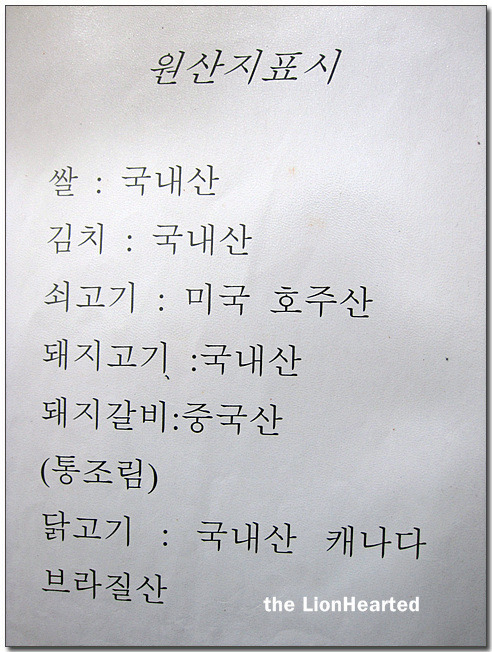 원산지표시
쌀 : 국내산
김치 : 국내산
쇠고기 : 미국 호주산
돼지고기 :국내산
돼지갈비:중국산
(통조림)
닭고기 : 국내산 캐나다
브라질산
the LionHearted